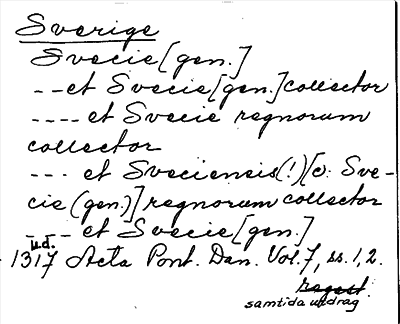 Sverige
Svecie [gen.]
-- et Svecie [gen.] collector
---- et Svecie regnorum
collector
--- et Sveciensis (!) [o: Sve-
cie (gen.)] regnorum collector
---- et Svecie [gen.]
u.d.
1317 Acta Pont. Dan. Vol. 7, ss. 1, 2.
regest.
samtida utdrag